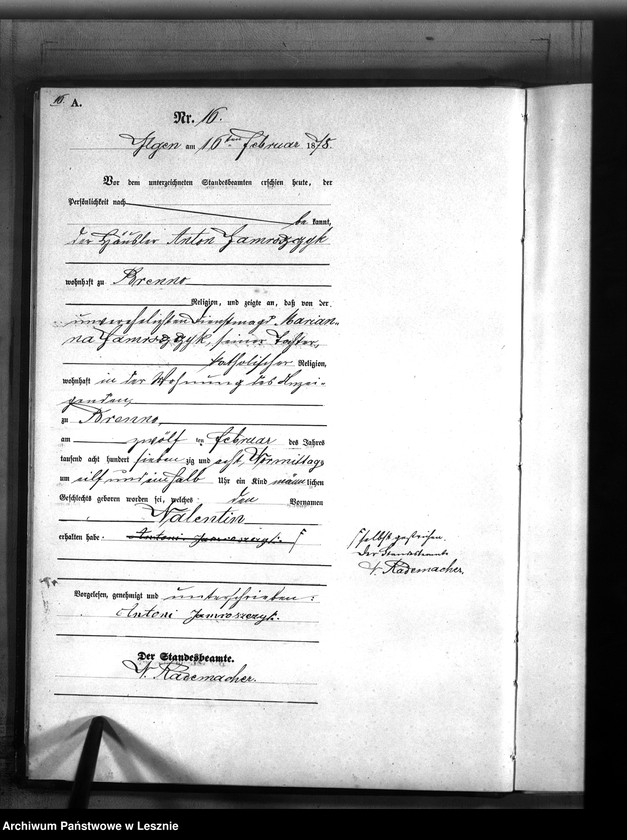 16. A.
Nr. 16.
Ilgen am 16ten Februar 1878.
Vor dem unterzeichneten Standesbeamten erschien heute, der
Persönlichkeit nach
be kannt,
der Häusler Anton Jamroszczyk
wohnhaft zu Brenno
Religion, und zeigte an, daß von der
unverehelichten Dienstmagd Marian-
na Jamroszczyk, seiner Tochter,
katholischer Religion,
wohnhaft in der Wohnung des Anzei-
genden
zu Brenno,
am zwölf ten Februar des Jahres
tausend acht hundert sieben zig und acht, Vormittags
um eilf und einhalb Uhr ein Kind männlichen
Geschlechts geboren worden sei, welches den Vornamen
Valentin
erhalten habe. Antoni Jamroszczyk.
selbst gestrichen.
Der Standesbeamte
Rademacher.
Vorgelesen, genehmigt und unterschrieben:
Antoni Jamroszczyk.
Der Standesbeamte.
Rademacher.
Archiwum Państwowe w Lesznie